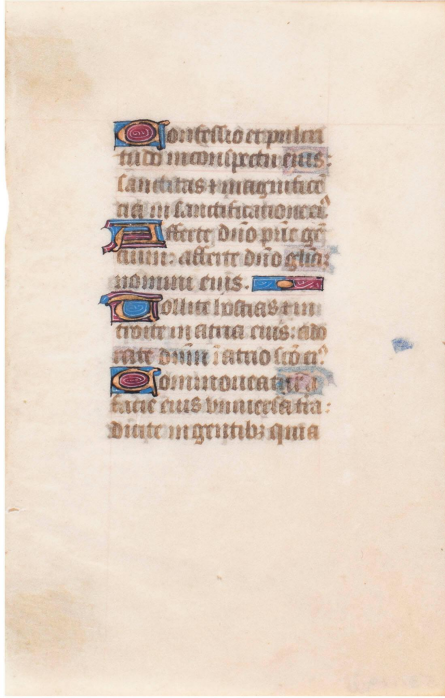 Confessio et pulcri
tudo in conspectu eius:
sanctitas ⁊ magnifice
cia in sanctificatione ei᷒
Afferte dn̄o pr̄ie gē
cium: afferte dn̄o glīaꝫ
nomini eius.
Tollite hostias ⁊ in
troite in atria eius: ado
rate dn̄m ī atrio sc̄o ei᷒
Commoueat᷒ a
facie eius vniuersa t̄ra:
dicite in gentibꝫ quia